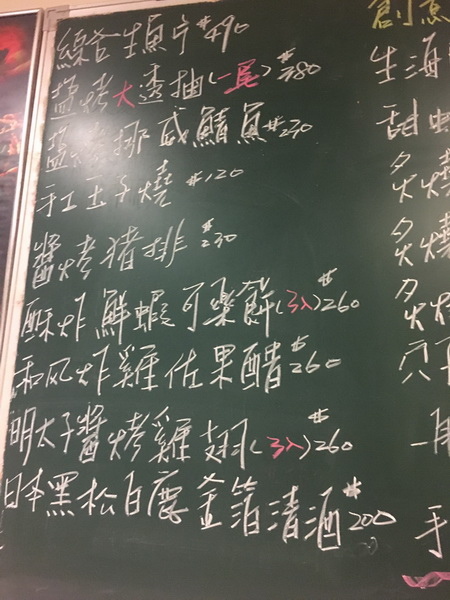 綜合生魚片 #490
鹽烤大透抽(一尾) #280
鹽烤挪威鯖魚 #230
手工玉子燒 #120
醬烤猪排 #230
酥炸鮮蝦可樂餅(3入) #260
和风炸雞佐果醋 #260
明太子醬烤雞翅(3入) #260
日本黑松白鹿金箔清酒 #200
創意
生海
甜蝦
炙燒
炙燒
炙燒
手